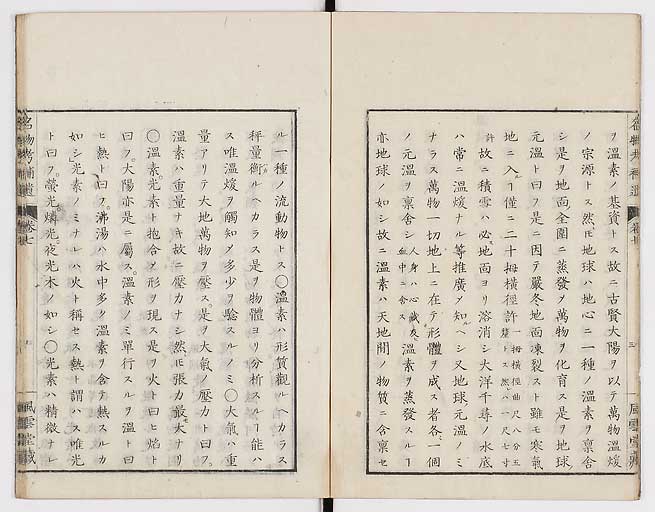 ヲ溫素ノ基資トス故ニ古賢太陽ヲ以テ萬物溫煖
ノ宗源トス然𪜈地球ハ地心ニ一種ノ溫素ヲ稟舎
シ是ヲ地面全圍ニ蒸發〆萬物ヲ化育ス是ヲ地球
元溫ト曰フ是ニ因テ嚴冬地面凍裂スト雖モ寒氣
地ニ入ヿ僅ニ二十拇橫徑許
故ニ積雪ハ必地面ヨリ溶消シ大洋千尋ノ水底
ハ常ニ溫煖ナル等推廣〆知ヘシ又地球元溫ノミ
ナラス萬物一切地上ニ在テ形體ヲ成ス者各一個
ノ元溫ヲ稟舎シ 溫素ヲ蒸發スルヿ
亦地球ノ如シ故ニ溫素ハ天地間ノ物質ニ含稟セ
名物考補遺 卷七 三 風雲堂藏
ル一種ノ流動物トス〇溫素ハ形質觀ルヘカラス
秤量衡ルヘカラス是ヲ物體ヨリ分析スルヿ能ハ
ス唯溫煖ヲ觸知〆多少ヲ驗スルノミ〇大氣ハ重
量アリテ大地萬物ヲ壓ス是ヲ大氣ノ壓力ト曰フ
溫素ハ重量ナキ故ニ壓力ナシ然𪜈張力最大ナリ
〇溫素光素ト抱合〆形ヲ現ス是ヲ火ト曰ヒ焰ト
曰フ大陽亦是ニ屬ス溫素ノミ單行スルヲ溫ト曰
ヒ熱ト曰フ沸湯ハ水中多ク溫素ヲ含テ熱スルカ
如シ光素ノミナレハ火ト稱セス熱ト謂ハス唯光
ト曰フ螢光燐光夜光木ノ如シ〇光素ハ精微ナレ
名物考補遺 卷七 風雲堂藏